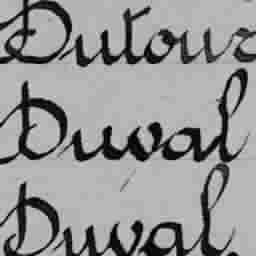 Dutour
Duval
Duval,